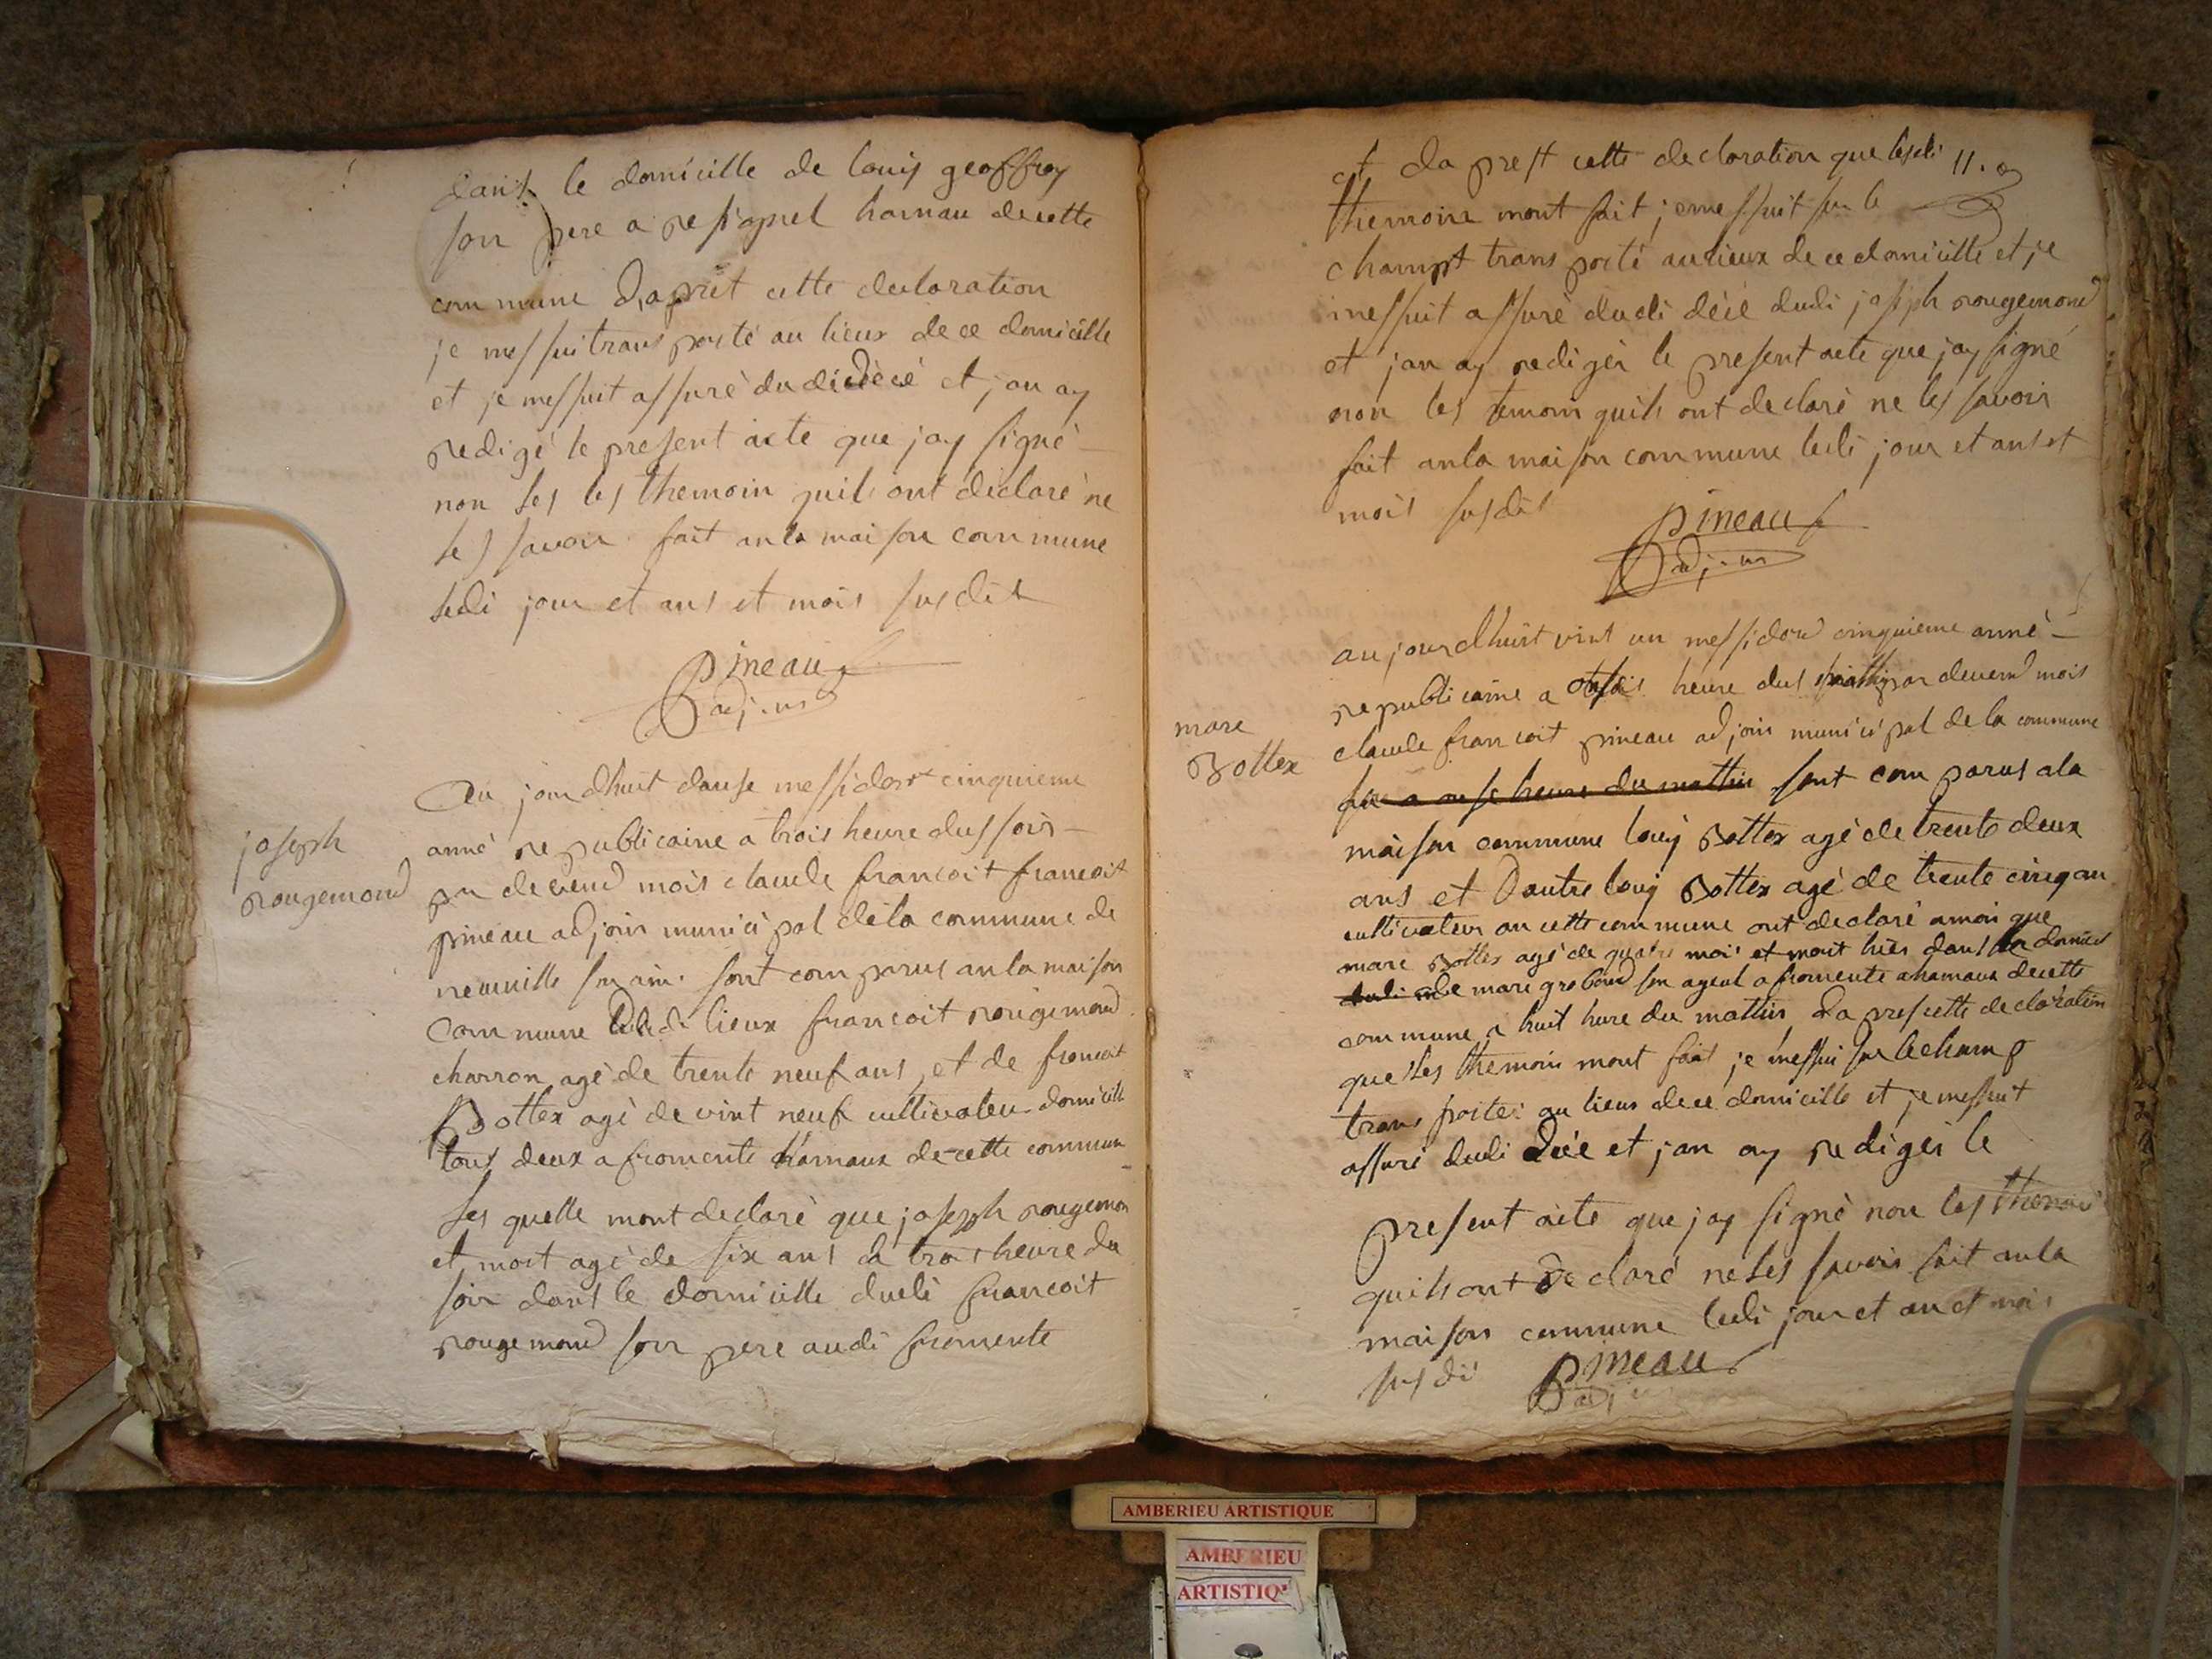 dans le domicille de louis geoffroy
son pere a resignel hamau de cette
commune d,apret cette declaration
je mes suit transporté au lieux de ce domicille
et je mes suit assuré du di décé et jan ay
redigé le present acte que jay signé
non les les themoin quils ont declaré ne
les savoir fait an la maison commune
ledi jour et ans et mois susdit
pineau
adjoin
joseph
rougemond
au jourdhuit douse messidort cinquieme
anné republicaine a trois heure dus soir
par devend mois claude francoit francoit
pineau adjoin municipal de la commune de
neuville sur ain sont comparus an la maison
commune dudi lieux francoit rougemond
charron agé de trente neuf ans et de francoit
Bottex agé de vint neuf cultivateur domicille
tous deux a fromente hamaux de cette commun
les quelle mont declaré que joseph rougemon
et mort agé de six ans a trois heure du
soir dans le domicille dudi francoit
rougemond son pere audi fromente
11.
et daprest cette declaration que lesdi
themoin mont fait je mes suit sur le
champt transporté au lieux de ce domicille et je
mes suit assuré dudi décé dudi joseph rougemond
et jan ay redigér le present acte que jay signé
non les temoin quils ont declaré ne les savoir
fait an la maison commune ledi jour et ans et
mois susdit
pineau
adjoin
marc
Bottex
aujourdhuit vint un messidord cinquieme anné
republicaine a heure dus par devend mois
claude francoit pineau adjoin municipal de la commune
a onse heure du mattin sont comparus a la
maison commune louis Bottex agé de trente deux
ans et Dautre louis Bottex agé de trente cinq an
cultivateur an cette commune ont declaré a moi que
marc Bottex agé de quatre mois et mort hier dans le domicil
de marc groboud son ayeul a fromente ahamaux de cette
commune a huit hure du mattin da pres cette declaration
que les themoin mont fait je mes sui sur le champ
transporter au lieux de ce domicille et je mes suit
assuré dudi décé et jan ay rediger le
present acte que jay signé non les themoin
quils ont declaré ne les savoir fait an la
maison commune ledi jour et an et mois
susdi pineau
adj
AMBERIEU ARTISTIQUE
AMBERIEU
ARTISTIQ